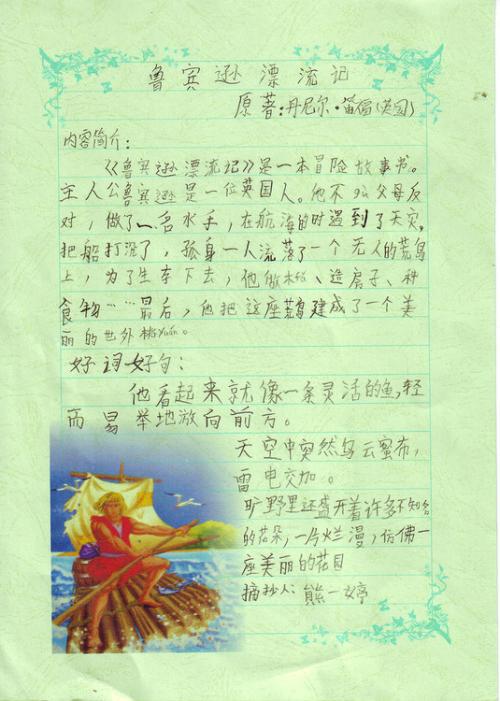 鲁宾逊漂流记
原著:丹尼尔·笛福(英国)
内容简介:
《鲁宾逊漂流记》是一本冒险故事书。
主人公鲁宾逊是一位英国人。他不父母反
对,做了一名水手,在航海的时遇到了天灾,
把船打沉了,孤身一人流落了一个无人的荒岛
上,为了生存下去,他做木、造房子、种
食物……最后,他把这座荒岛建成了一个美
丽的世外桃yuán。
好词好句:
他看起来就像一条灵活的鱼,轻
而易举地放向前方。
天空中突然乌云密布,
雷电交加。
旷野里还盛开着许多不知名
的花朵,一片烂漫,仿佛一
座美丽的花园
摘抄人:熊一婷